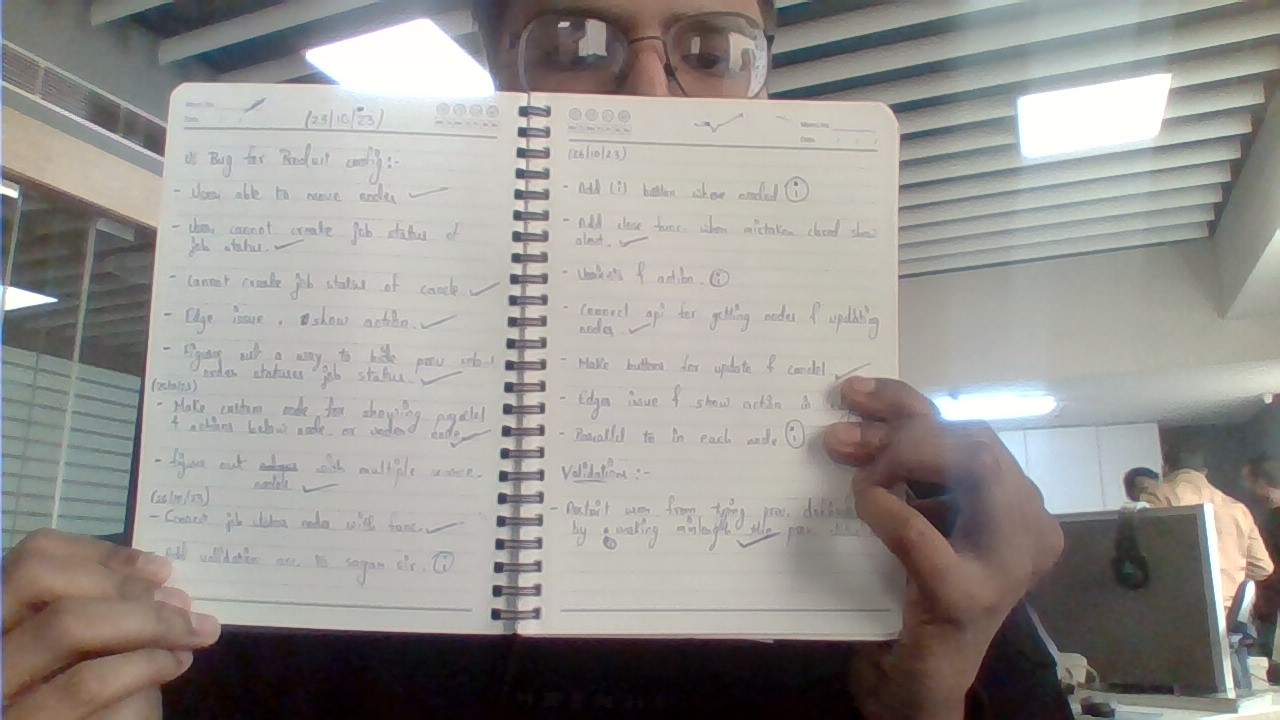 (23/10/23)
Bug for Product config:-
- User able to move nodes
- User cannot create job status of
job status.
- Cannot create job status of cancle.
- Edge issue, show action.
- Figure out a way to hide prev
order statuses job status.
- Make custom node for showing parallel
& actions below node or
- Figure out with multiple
(26/10/23)
- Connect job status node with func.
- Add validation acc. to sagar sir. (i)
(26/10/23)
- Add (i) button where needed (i)
- Add close func. when mistaken closed show
alert.
- & action. (i)
- Connect api for getting nodes & updating
nodes.
- Make buttons for update & cancel
- Edges issue & show action in
- Parallel to in each node (i)
Validations :-
- Restrict user from typing prev.
by making minlength prev.